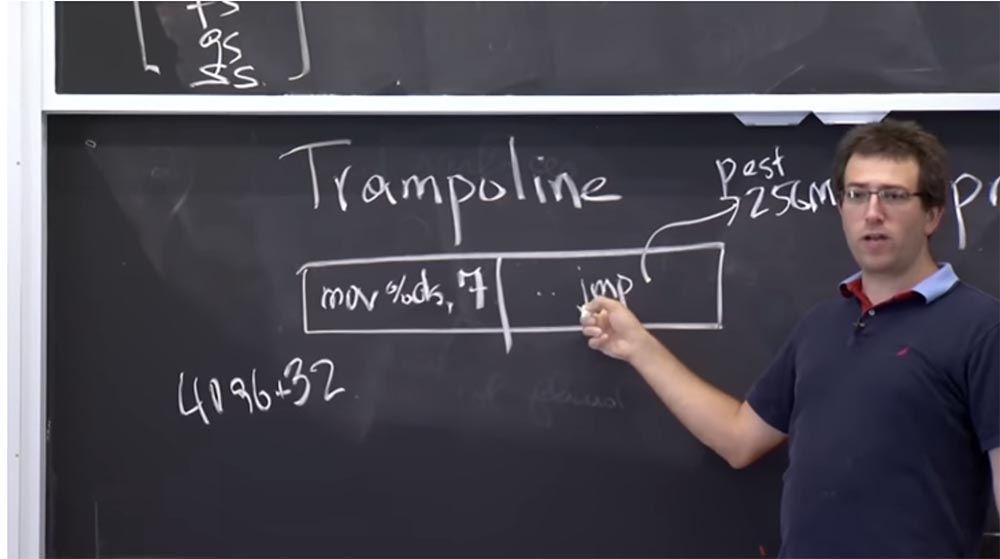 fs
gs
ss
Trampoline
past
256M
pr
mov %ds, 7
.. jmp
4096+32